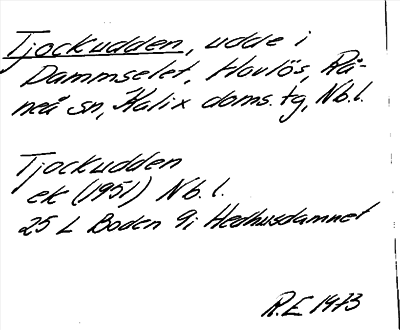 Tjockudden, udde i
Dammselet, Hovlös, Rå-
neå sn, Kalix doms. tg, Nb.l.
Tjockudden
ek (1951) Nb. l.
25 L Boden 9i Hedhusdammet
R.E 1973